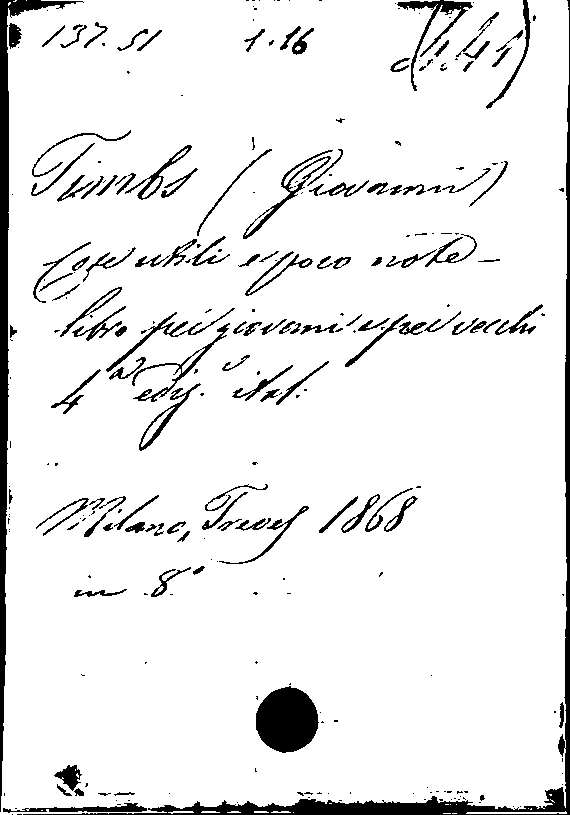 137.51 1.16
Timbs (Giovanni)
Cose utili e poco note -
libro pei giovani e pei vecchi
4ª ediz.e ital.
Milano, Treves 1868
in 8°